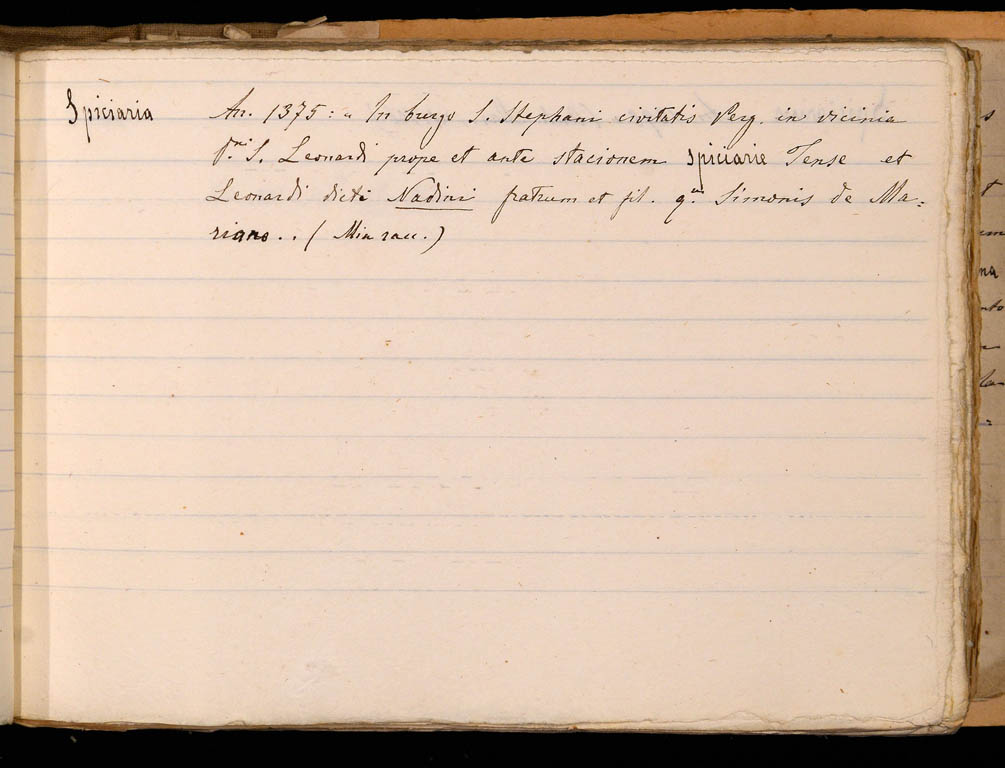 Spiciaria An. 1375: " In burgo S. Stephani civitatis Perg. in vicinia
S. Leonardi prope et ante stacionem spiciarie Tense et
Leonardi dicti Nadini fratrum et fil. q.m Simonis de Ma=
riano.. ( Mia racc.)